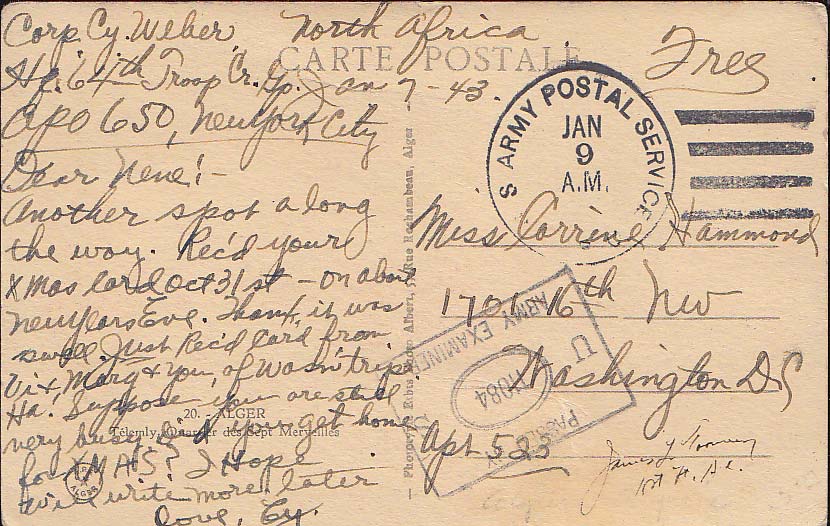 Corp. Cy. Weber North Africa
Hq. 64th Troop Cr. Gp. Jan 7-43.
APO 650, New York City
Dear Nene!-
Another spot along
the way. Rec'd your
Xmas Card Oct 31st - on about
New Years Eve. Thanx, it was
swell. Just Rec'd Card from
Vix, Mary & you, of Wash trip.
Ha. Suppose you are still
very busy. Did you get home
for XMAS? I Hope
will write more later
love, Cy.
CARTE POSTALE
20. - ALGER
Télemly, Quartier des Sept Merveilles
ALGER
Rue Rochambeau, Alger
Free
U S ARMY POSTAL SERVICE
JAN
9
A.M.
Miss Corrine Hammond
1701 16th NW
Washington DC
Apt 533
PASSED BY
U
11084
ARMY EXAMINER
James L
1st